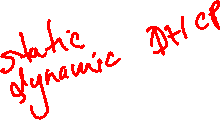 static
dynamic DHCP